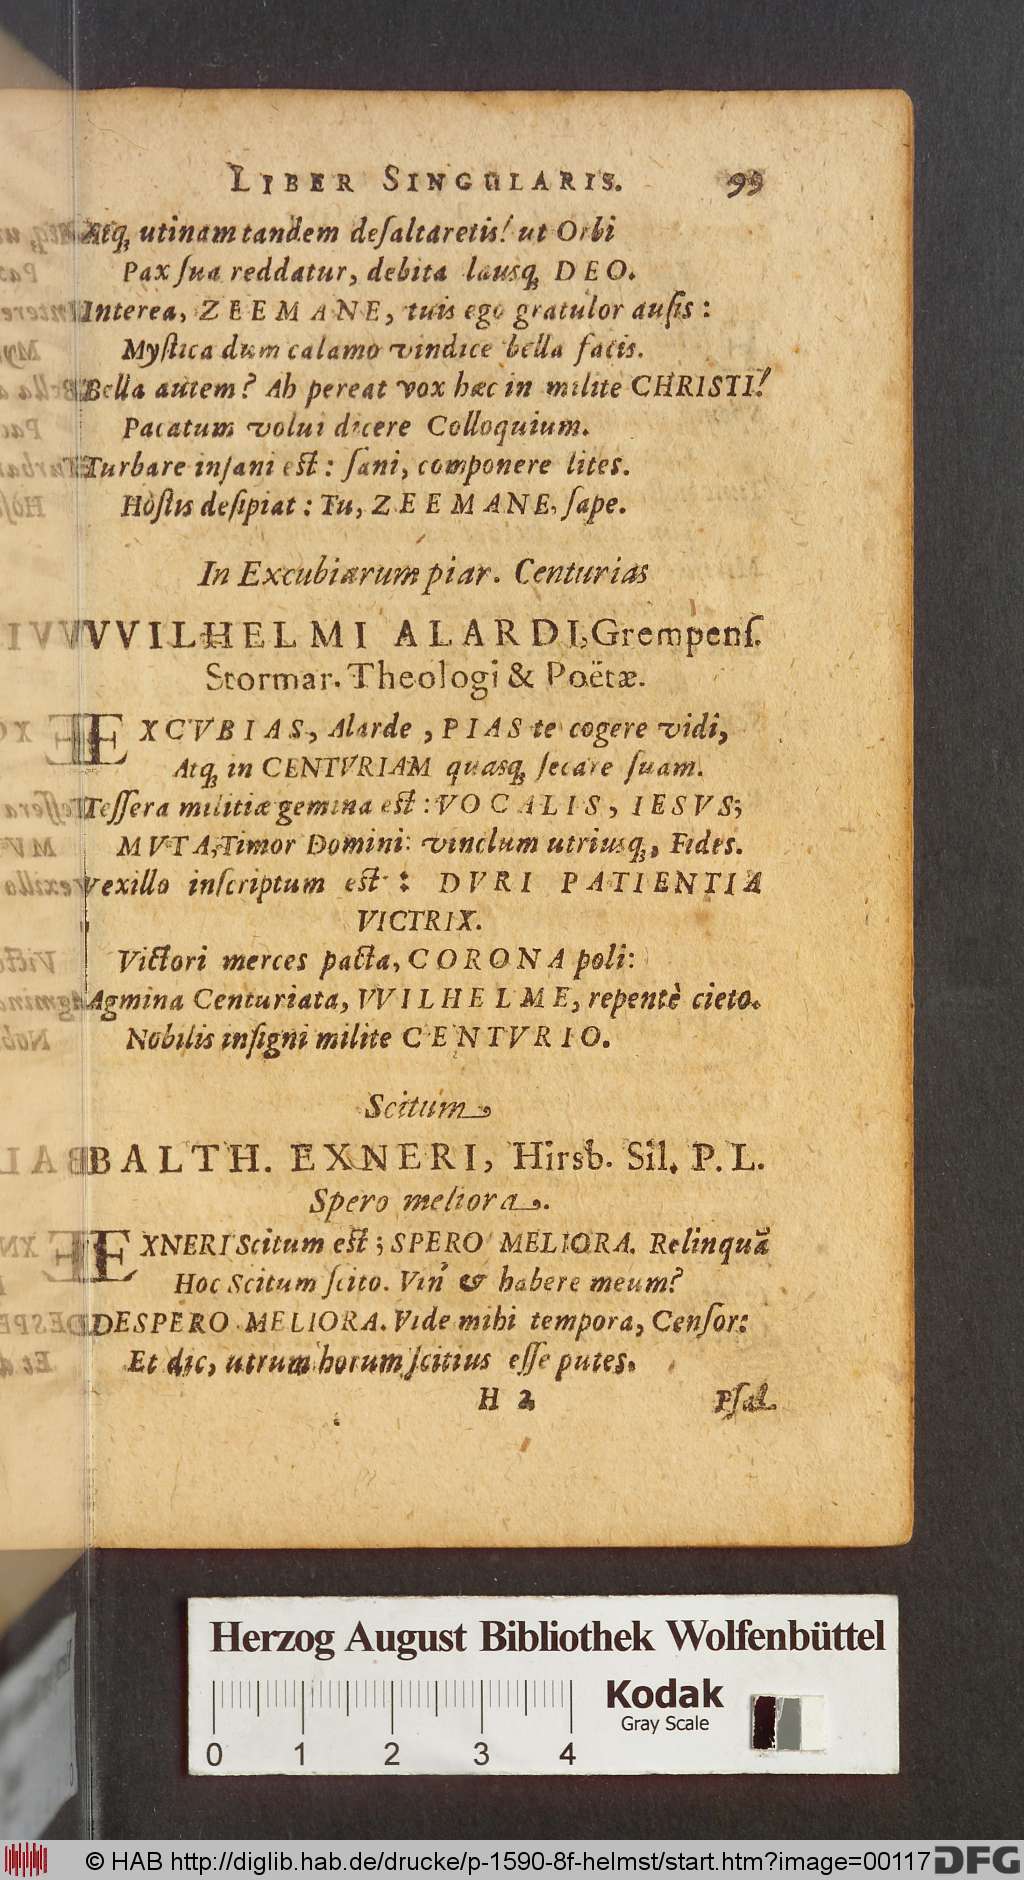 LIBER SINGULARIS. 99
Atq́; utinam tandem deſaltaretis! ut Orbi
Pax ſua reddatur, debita lausq́; DEO.
Interea, ZEEMANE, tuis ego gratulor auſis:
Myſtica dum calamo vindice bella facis.
Bella autem? Ah pereat vox hæc in milite CHRISTI!
Pacatum volui dicere Colloquium.
Turbare inſani eſt: ſani, componere lites.
Hoſtis deſipiat: Tu, ZEEMANE, ſape.
In Excubiarum piar. Centurias
VVILHELMI ALARDI, Grempenſ.
Stormar. Theologi & Poëtæ.
EXCVBIAS, Alarde, PIAS te cogere vidi,
Atq́; in CENTVRIAM quasq́; ſecare ſuam.
Teſſera militiæ gemina eſt: VOCALIS, IESVS;
MVTA, Timor Domini: vinclum utriusq́;, Fides.
Vexillo inſcriptum eſt: DVRI PATIENTIA
VICTRIX.
Victori merces pacta, CORONA poli:
Agmina Centuriata, VVILHELME, repentè cieto.
Nobilis inſigni milite CENTVRIO.
Scitum
BALTH. EXNERI, Hirsb. Sil. P. L.
Spero meliora.
EXNERI Scitum eſt; SPERO MELIORA. Relinquã
Hoc Scitum ſcito. Vin' & habere meum?
DESPERO MELIORA. Vide mihi tempora, Cenſor:
Et dic, utrum horum ſcitius eſſe putes.
H 2 Pſal
Herzog August Bibliothek Wolfenbüttel
Kodak
Gray Scale
0 1 2 3 4
© HAB http://diglib.hab.de/drucke/p-1590-8f-helmst/start.htm?image=00117 DFG